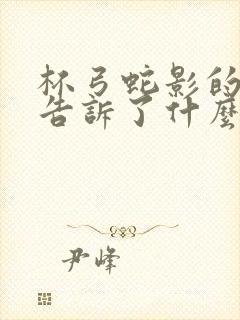 杯弓蛇影的
告訴了什麼
尹峰